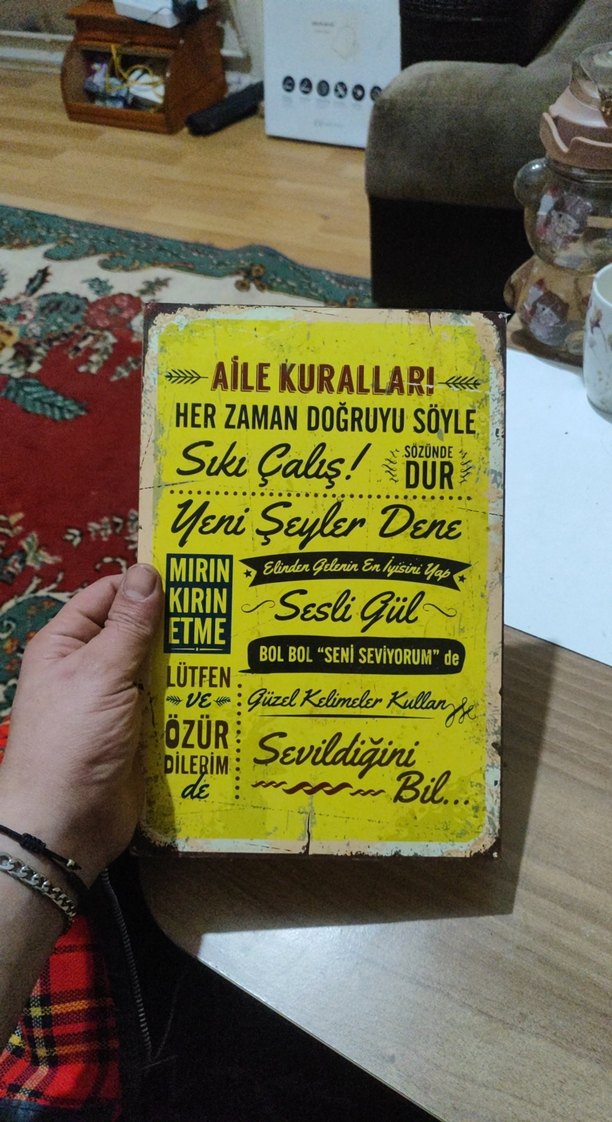 AİLE KURALLARI
HER ZAMAN DOĞRUYU SÖYLE
Sıkı Çalış!
SÖZÜNDE
DUR
Yeni Şeyler Dene
MIRIN
KIRIN
ETME
Elinden Gelenin En İyisini Yap
Sesli Gül
BOL BOL "SENİ SEVİYORUM" de
LÜTFEN
ve
ÖZÜR
DİLERİM
de
Güzel Kelimeler Kullan
Sevildiğini
Bil...